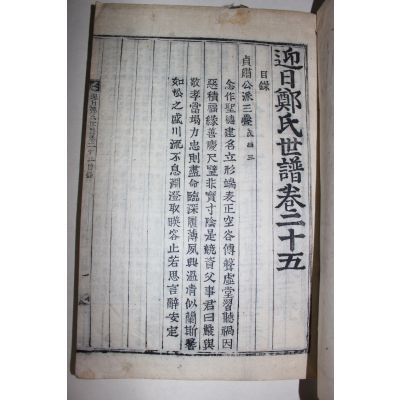 迎日鄭氏世譜卷二十五
目錄
公派三
念作聖德建名立形端表正空谷傳聲虛堂習聽禍因
惡積福緣善慶尺璧非寶寸陰是競資父事君曰嚴與
敬孝當竭力忠則盡命臨深履薄夙興溫凊似蘭斯馨
如松之盛川流不息淵澄取暎容止若思言辭安定